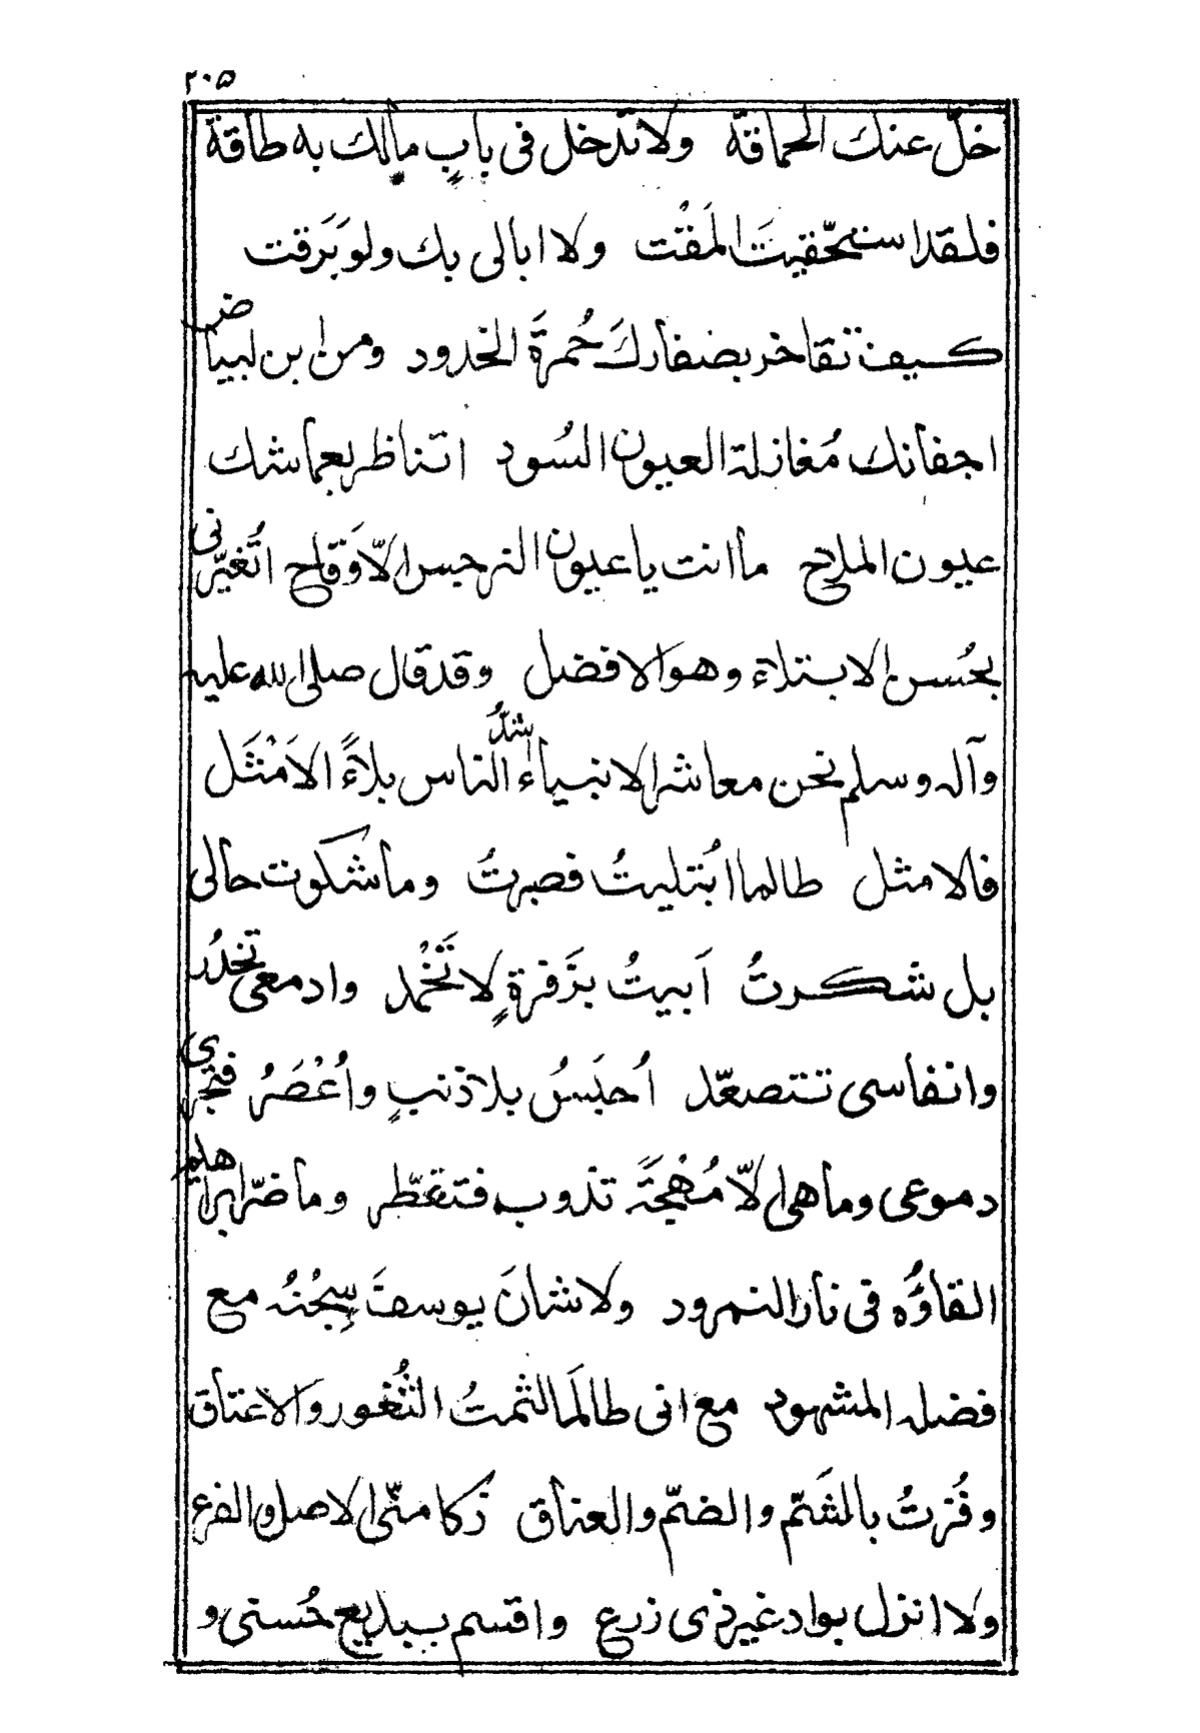 ٢٠٥
خلّ عنك الحماقة ولا تدخل فى بابٍ مالك به طاقة
فلقد استحّقيتَ المَقْت ولا ابالى بك ولو بَرَقت
كيف تفاخر بصفارك حُمرةَ الخدود ومن اين لبياض
اجفانك مُغازلة العيون السُود اتناظر بعماشك
عيون الملاح ما انت يا عيون النرجس الّا وَقّاح اتُغيّرنى
بحُسن الابتلاء وهو الافضل وقد قال صلى الله عليه
وآله وسلم نحن معاشر الانبياء اشدُّ الناس بلاءً الاَمْثَل
فالامثل طالما ابُتليتُ فصبرتُ وما شكوت حالى
بل شكرتُ اَبيتُ بزَفرةٍ لا تَخْمد وادمعى تخدُر
وانفاسى تتصعّد اُحبَسُ بلا ذنبٍ واُعْصَرُ فتجرى
دموعى وما هى الّا مُهْجَةً تذوب فتقطّر وما ضرّ ابراهيم
القاؤُه فى نار النمرود ولا شانَ يوسفَ سِجْنُه مع
فضله المشهود مع انى طالمَا لثمتُ الثُغور والاعناق
وفُزتُ بالشَمّ والضمّ والعناق زكا منّى الاصل والفرع
ولا انزل بواد غير ذى زرع واقسم ببديع حُسنى و